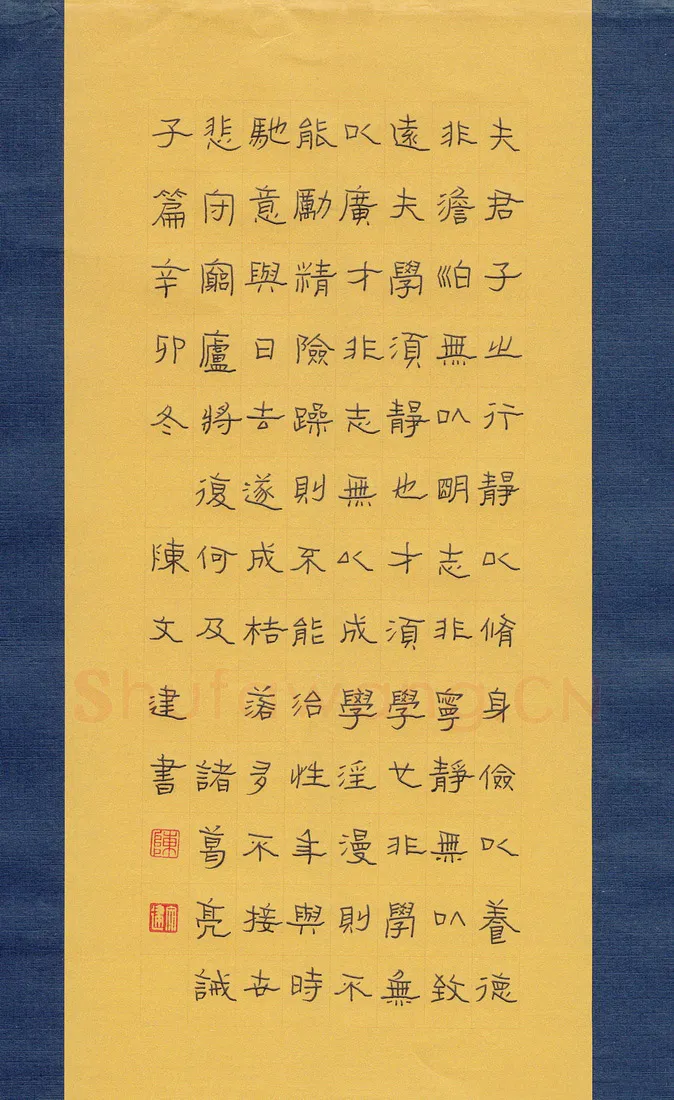 夫君子之行靜以脩身儉以養德
非澹泊無以明志非寧靜無以致
遠夫學須靜也才須學也非學無
以廣才非志無以成學淫漫則不
能勵精險躁則不能治性年與時
馳意與日去遂成枯落多不接世
悲守窮廬將復何及 諸葛亮誡
子篇辛卯冬 陳文建書
陳
文建
Shufawang.CN